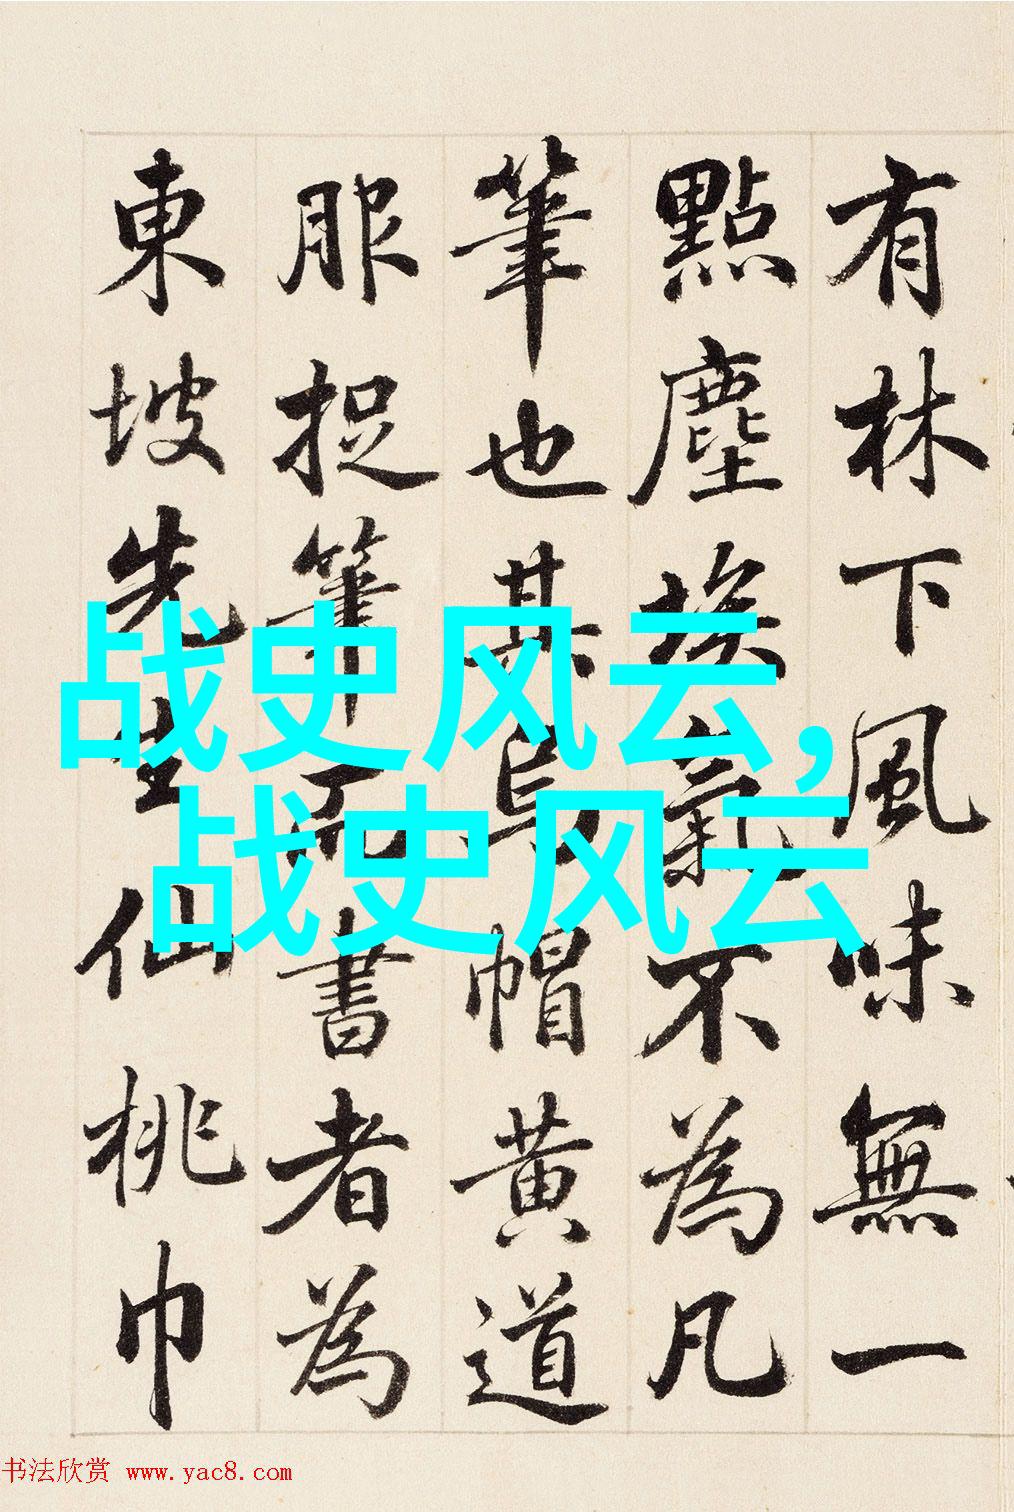 有林下風味無一
點塵埃氣不為凡
筆也其烏帽黃道
服捉筆而書者為
東坡先生仙桃巾
战史风云,
战史风云
书法欣赏 www.yac8.com